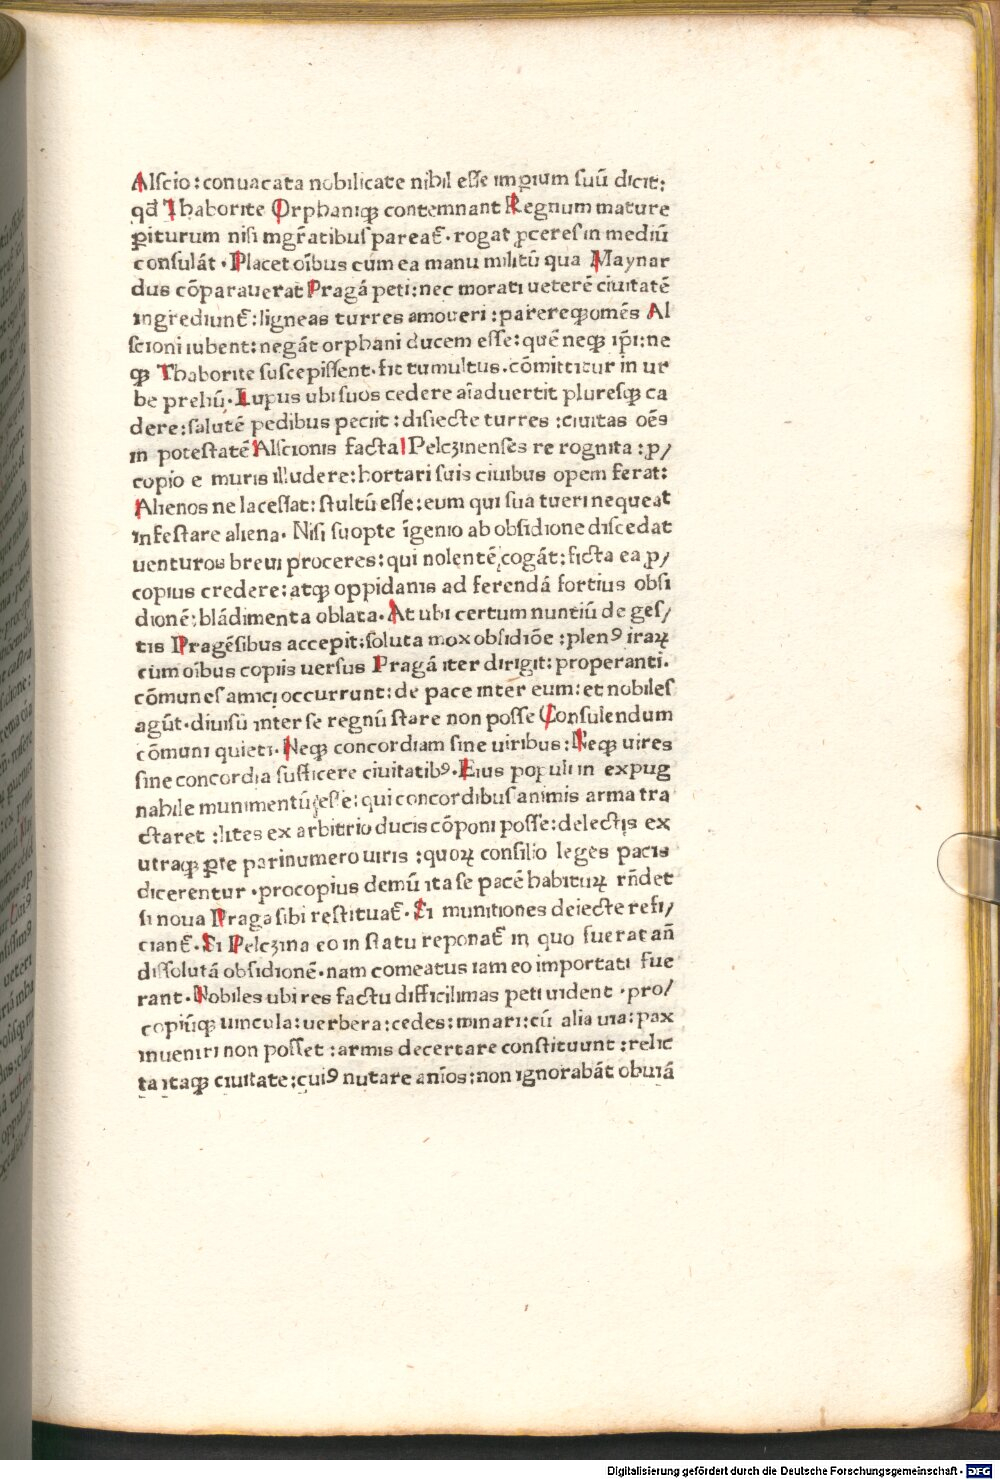 Alscio : conuacata nobilitate nibil esse imꝑium suū dicit:
qđ Thaborite Orphaniqꝫ contemnant Regnum mature
ꝑiturum nisi mgr̃atibus pareat̃ · rogat ꝓceres in mediū
consulāt · Placet oı̄bus cum ea manu militū qua Maynar
dus cōparauerat Pragā peti : nec morati ueterē ciuitatē
ingrediunt̃ : ligneas turres amoueri : parereqꝫ omēs Al
scioni iubent : negāt orphani ducem esse : quē neqꝫ ip̄i : ne
qꝫ Thaborite suscepissent · fit tumultus . cōmittitur in ur
be preliū · Lupus ubi suos cedere aı̄aduertit pluresqꝫ ca
dere : salutē pedibus peciit : disiecte turres : ciuitas oēs
in potestatē Alscionis facta Pelczinenses re rognita : p/
copio e muris illudere : hortari suis ciuibus opem ferat :
Alienos ne lacessat : stultū esse : eum qui sua tueri nequeat
infestare aliena · Nisi suopte īgenio ab obsidione discedat
uenturos breui proceres : qui nolentē cogāt : ficta ea ꝓ/
copius credere : atqꝫ oppidanis ad ferendā fortius obsi
dionē : blādimenta oblata · At ubi certum nuntiū de ges/
tis Pragēsibus accepit : soluta mox obsidiōe : plenꝰ iraꝝ
cum oı̄bus copiis uersus Pragā iter dirigit : properanti .
cōmunes amici occurrunt : de pace inter eum : et nobiles
agūt · diuisū inter se regnū stare non posse Consulendum
cōmuni quieti · Neqꝫ concordiam sine uiribus : Neqꝫ uires
sine concordia sufficere ciuitatibꝰ · Eius populi in expug
nabile munimentū esse : qui concordibus animis arma tra
ctaret : lites ex arbitrio ducis cōponi posse : delectis ex
utraqꝫ ꝑte pari numero uiris : quoꝝ consilio leges pacis
dicerentur · procopius demū ita se pacē habituꝝ rn̄det
si noua Praga sibi restituat̃ · Si munitiones deiecte refi/
ciant̃ · Si Pelczina eo in statu reponat̃ in quo fuerat añ
dissolutā obsidionē · nam comeatus iam eo importati fue
rant · Nobiles ubi res factu difficilimas peti uident · pro/
copiūqꝫ uincula : uerbera : cedes : minari : cū alia uia : pax
inueniri non posset : armis decertare constituunt : relic
ta itaqꝫ ciuitate : cuiꝰ nutare anı̄os : non ignorabāt obuiā
Digitalisierung gefördert durch die Deutsche Forschungsgemeinschaft - DFG